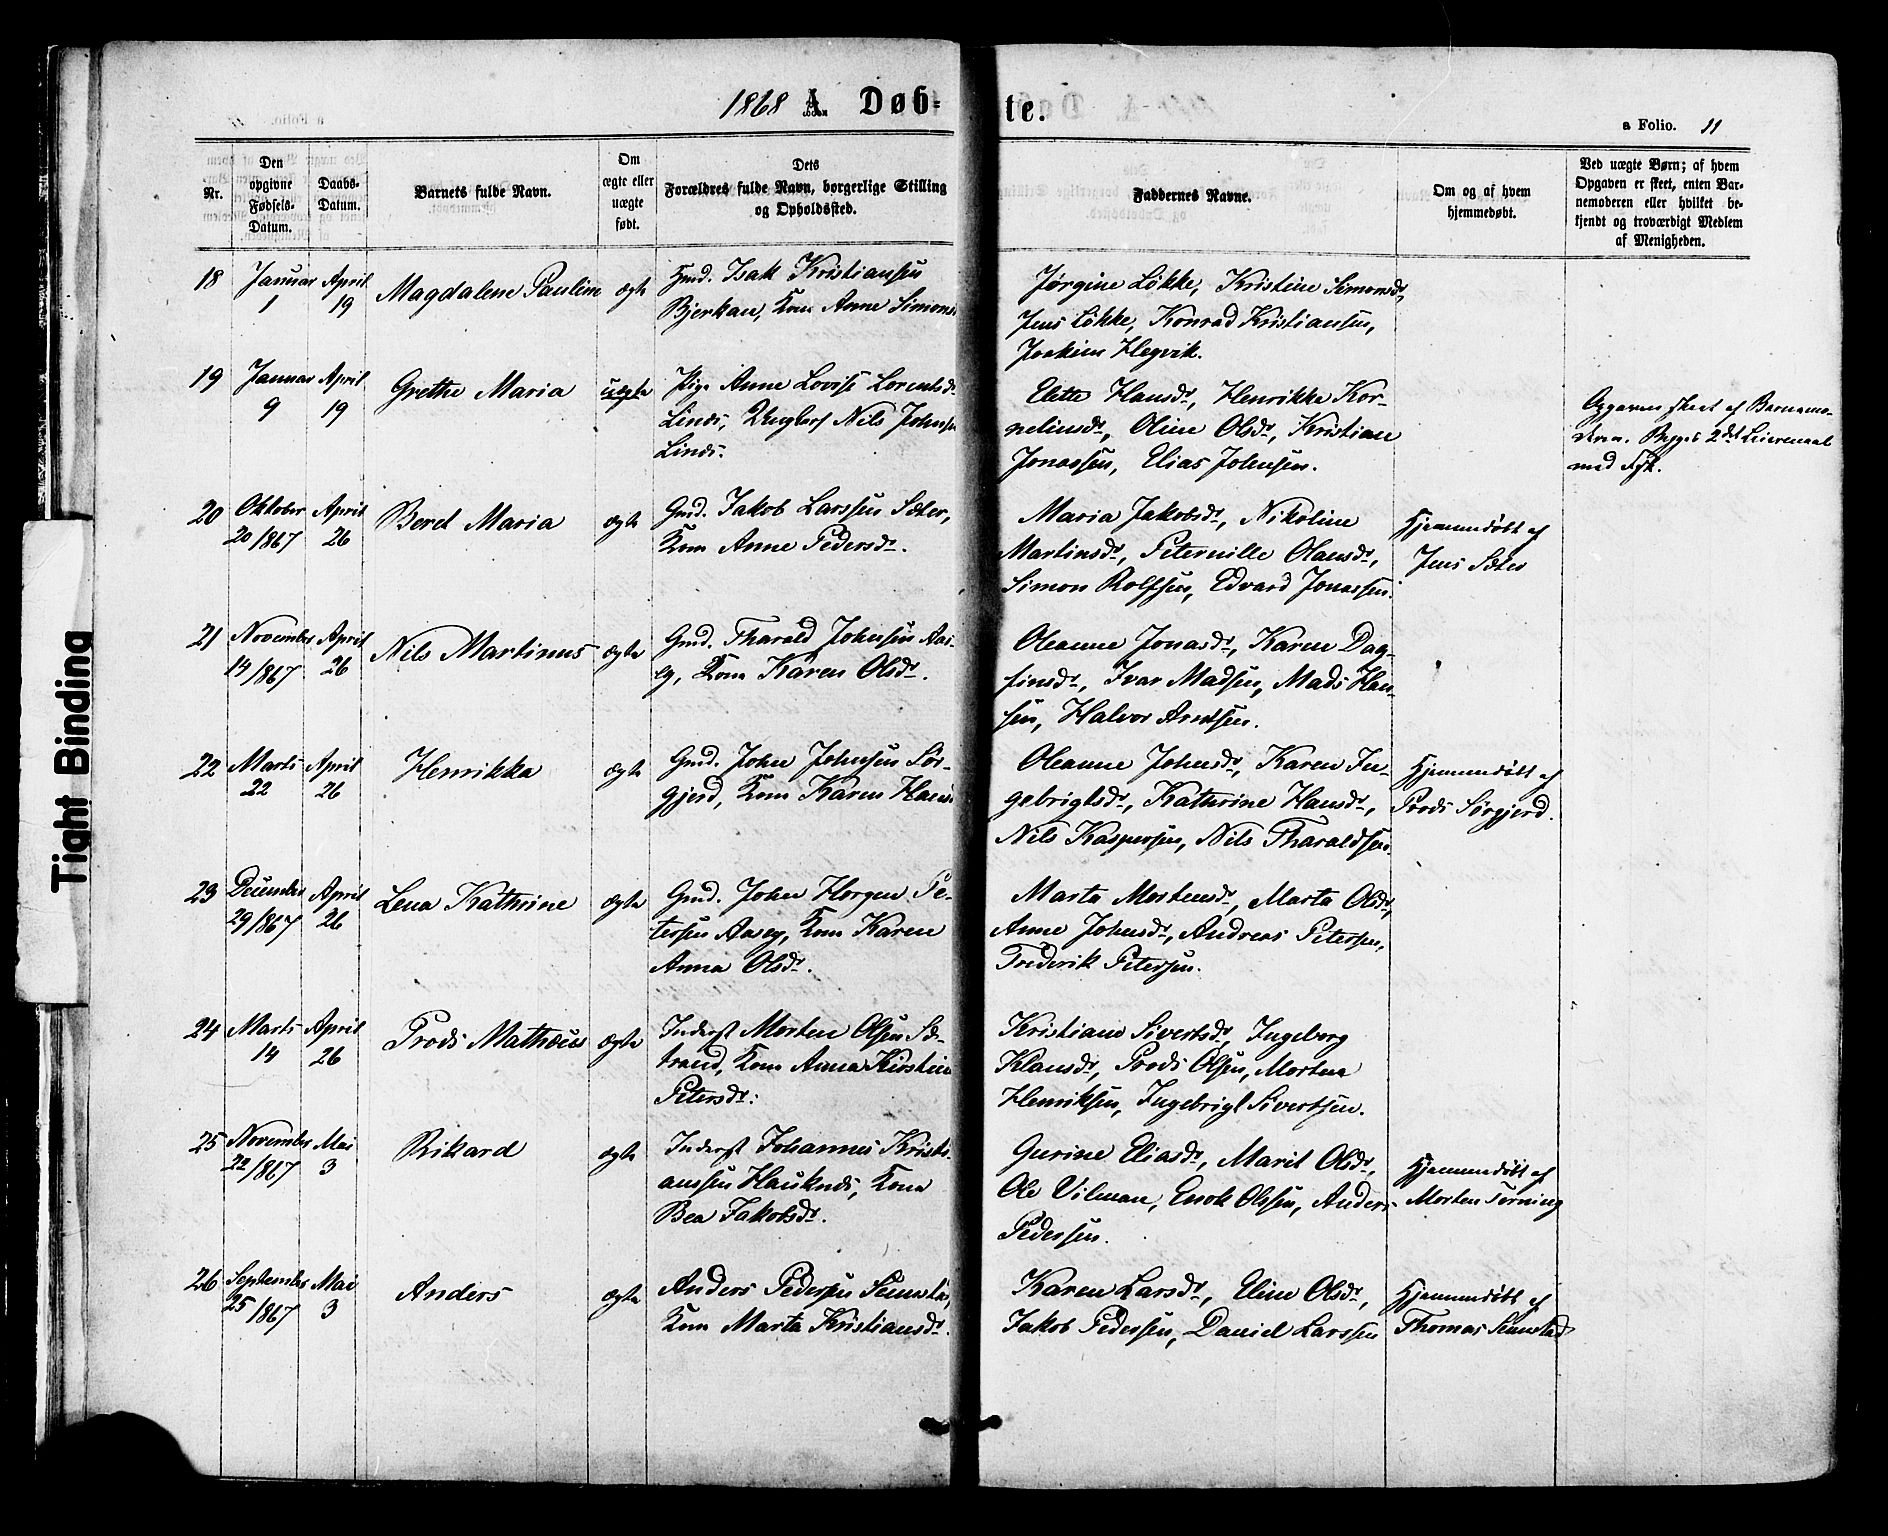 1868 A. Døb-te.
a Folio. 11
Nr.
Den opgivne Fødsels-Datum.
Daabs-Datum.
Barnets fulde Navn.
Om ægte eller uægte født.
Dets Forældres fulde Navn, borgerlige Stilling og Opholdssted.
Faddernes Navne.
Om og af hvem hjemmedøbt.
Ved uægte Børn; af hvem Opgaven er skeet, enten Barnemoderen eller hvilket bekjendt og troværdigt Medlem af Menigheden.
18 Januar 1 April 19 Magdalene Pauline ægte
Gmd. Isak Kristiansen
Bjerkan, Kone Anne Simons
Jørgine Løkke, Kristine Simonsdr,
Jens Løkke, Konrad Kristiansen,
Joakim Hegvik.
19 Januar 9 April 19 Grethe Maria uægte
Pige Anne Lovise Lorentsdr
Linds, Ungkarl Nils Johnsen
Linds.
Elette Hansdr, Henrikke Kor-
neliusdr, Oline Olsdr, Kristian
Jonassen, Elias Johnsen.
Opgaven skeet af Barnemo-
deren. Begges 2det Leiermaal
med Fgl.
20 Oktober 20/1867 April 26 Beret Maria ægte
Gmd. Jakob Larssen Sæter,
Kone Anne Pedersdr.
Maria Jakobsdr, Nikoline
Martinsdr, Peternille Olausdr,
Simon Rolfsen, Edvard Jonassen.
Hjemmedøbt af
Jens Sæter
21 November 14/1867 April 26 Nils Martinus ægte
Gmd. Tharald Johnsen Aas-
eg, Kone Karen Olsdr.
Oleanne Jonasdr, Karen Dag-
finsdr, Ivar Madsen, Mads Han-
sen, Halvor Arntsen.
22 Marts 22 April 26 Henrikka ægte
Gmd. John Johnsen Sør-
gjerd, Kone Karen Hans
Oleanne Johnsdr, Karen In-
gebrigtsdr, Kathrine Hansdr,
Nils Kaspersen, Nils Tharaldsen.
Hjemmedøbt af
Prods Sørgjerd.
23 December 29/1867 April 26 Lena Kathrine ægte
Gmd. John Horgen Pe-
tersen Aaseg, Kone Karen
Anna Olsdr.
Marta Mortensdr, Marta Olsdr,
Anne Johnsdr, Andreas Petersen,
Frederik Petersen.
24 Marts 14 April 26 Prods Mathæus ægte
Inderst Morten Olsen Sæ-
trand, Kone Anna Kirstine
Petersdr.
Kristiane Sivertsdr, Ingeborg
Klausdr, Prods Olsen, Morten
Henriksen, Ingebrigt Sivertsen.
25 November 22/1867 Mai 3 Rikard ægte
Inderst Johannes Kristi-
anssen Hauknes, Kone
Bea Jakobsdr.
Gurine Eliasdr, Marit Olsdr,
Ole Vilman, Enok Olssen, Anders
Pedersen.
Hjemmedøbt af
Morten Terning
26 September 25/1867 Mai 3 Anders ægte
Anders Pedersen Seimstad,
Kone Marta Kristiansdr.
Karen Larsdr, Eline Olsdr,
Jakob Pedersen, Daniel Larssen
Hjemmedøbt af
Thomas Seimstad
Tight Binding